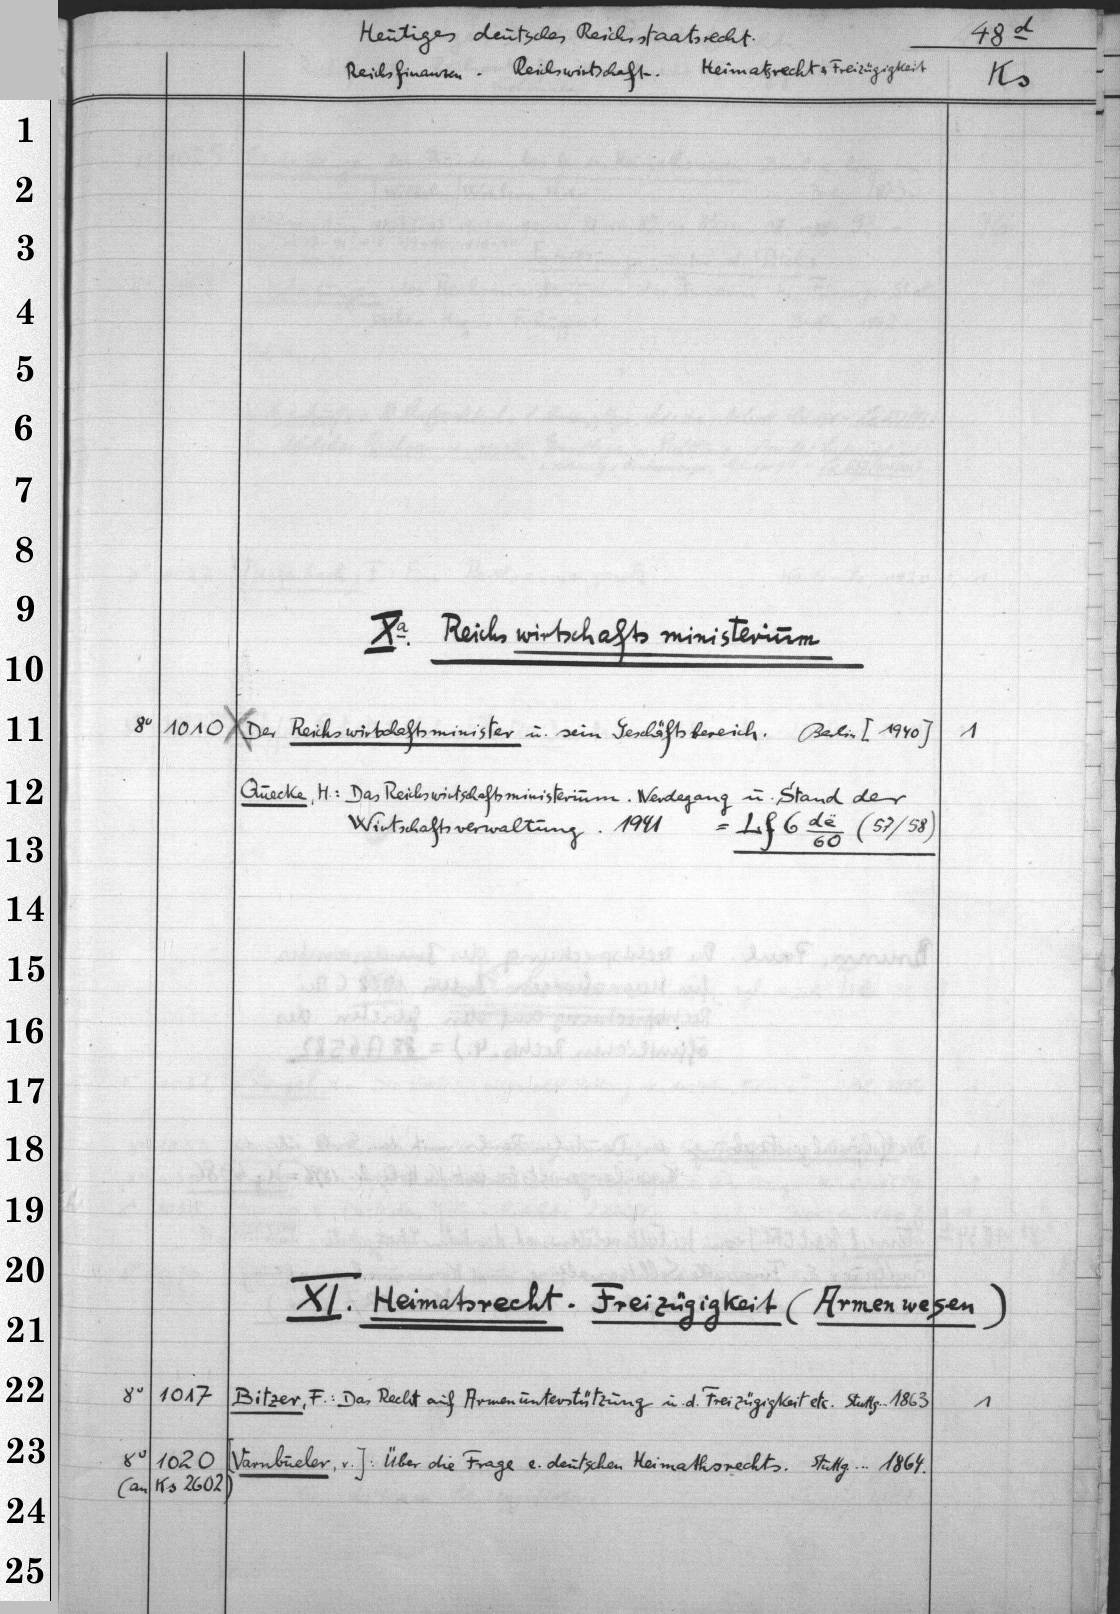 Heutiges deutsches Reichsstaatsrecht.
48 d
Reichsfinanzen. Reichswirtschaft. Heimatsrecht & Freizügigkeit
Ks
1
2
3
4
5
6
7
8
9
Xa. Reichswirtschaftsministerium
10
11 8° 1010 X Der Reichswirtschaftsminister u. sein Geschäftsbereich. Berlin [1940] 1
12 Quecke, H.: Das Reichswirtschaftsministerium. Werdegang u. Stand der
Wirtschaftsverwaltung. 1941 = Lf 6 dë/60 (57/58)
13
14
15
16
17
18
19
20
XI. Heimatsrecht. Freizügigkeit (Armenwesen)
21
22 8° 1017 Bitzer, F.: Das Recht auf Armenunterstützung u. d. Freizügigkeit etc. Stuttg. 1863 1
23 8° 1020 [Varnbüeler, v.]: Über die Frage e. deutschen Heimathsrechts. Stuttg... 1864.
(an Ks 2602)
24
25